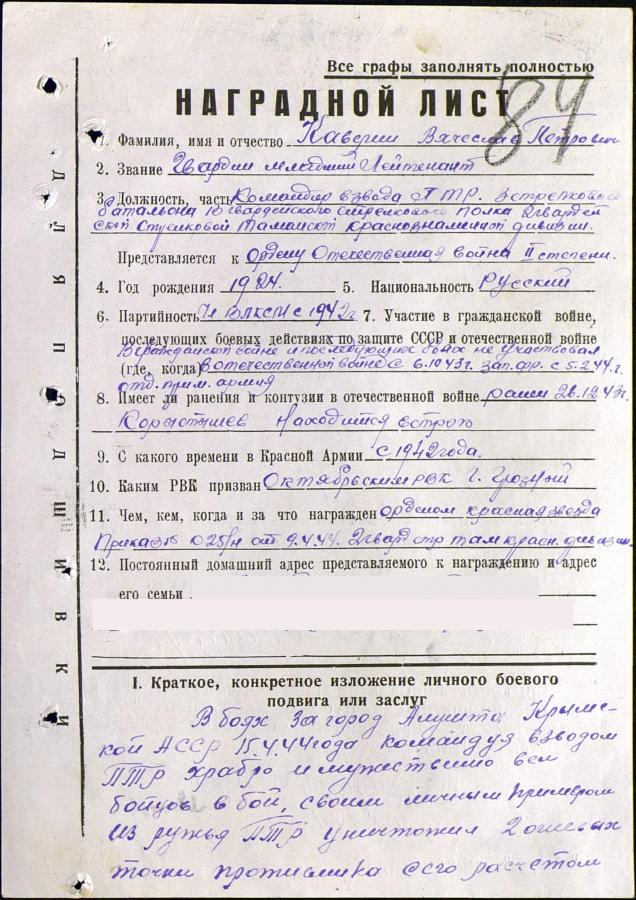 Все графы заполнять полностью
84
НАГРАДНОЙ ЛИСТ
1. Фамилия, имя и отчество Каверин Вячеслав Петрович
2. Звание Гвардии младший Лейтенант
3. Должность, часть Командир взвода ПТР. 3 стрелкового
батальона 15 гвардейского стрелкового полка 2 гвардей
ской Стрелковой Таманской краснознаменной дивизии.
Представляется к Ордену Отечественная война II степени.
4. Год рождения 1924. 5. Национальность Русский
6. Партийность Чл ВЛКСМ с 1942г. 7. Участие в гражданской войне,
последующих боевых действиях по защите СССР и отечественной войне
В гражданской войне и последующих боях не участвовал
(где, когда) в отечественной войне с 6.10.43г. зап. фр. с 5.2.44.г.
отд. прим. армия
8. Имеет ли ранения и контузии в отечественной войне ранен 26.12.43г.
Коростышев Находится в строю
9. С какого времени в Красной Армии с 1942 года.
10. Каким РВК призван Октябрьским РВК г. Грозный
11. Чем, кем, когда и за что награжден орденом красная звезда
Приказ № 025/н от 9.4.44. 2 гвард стр там красн. дивизии.
12. Постоянный домашний адрес представляемого к награждению и адрес
его семьи
I. Краткое, конкретное изложение личного боевого
подвига или заслуг
В боях за город Алушта Крымс-
кой АССР 15.4.44 года командуя взводом
ПТР храбро и мужественно вел
бойцов в бой, своим личным примером
из ружья ПТР уничтожил 2 огневых
точки противника с его расчетом
ДЛЯ ПОДШИВКИ